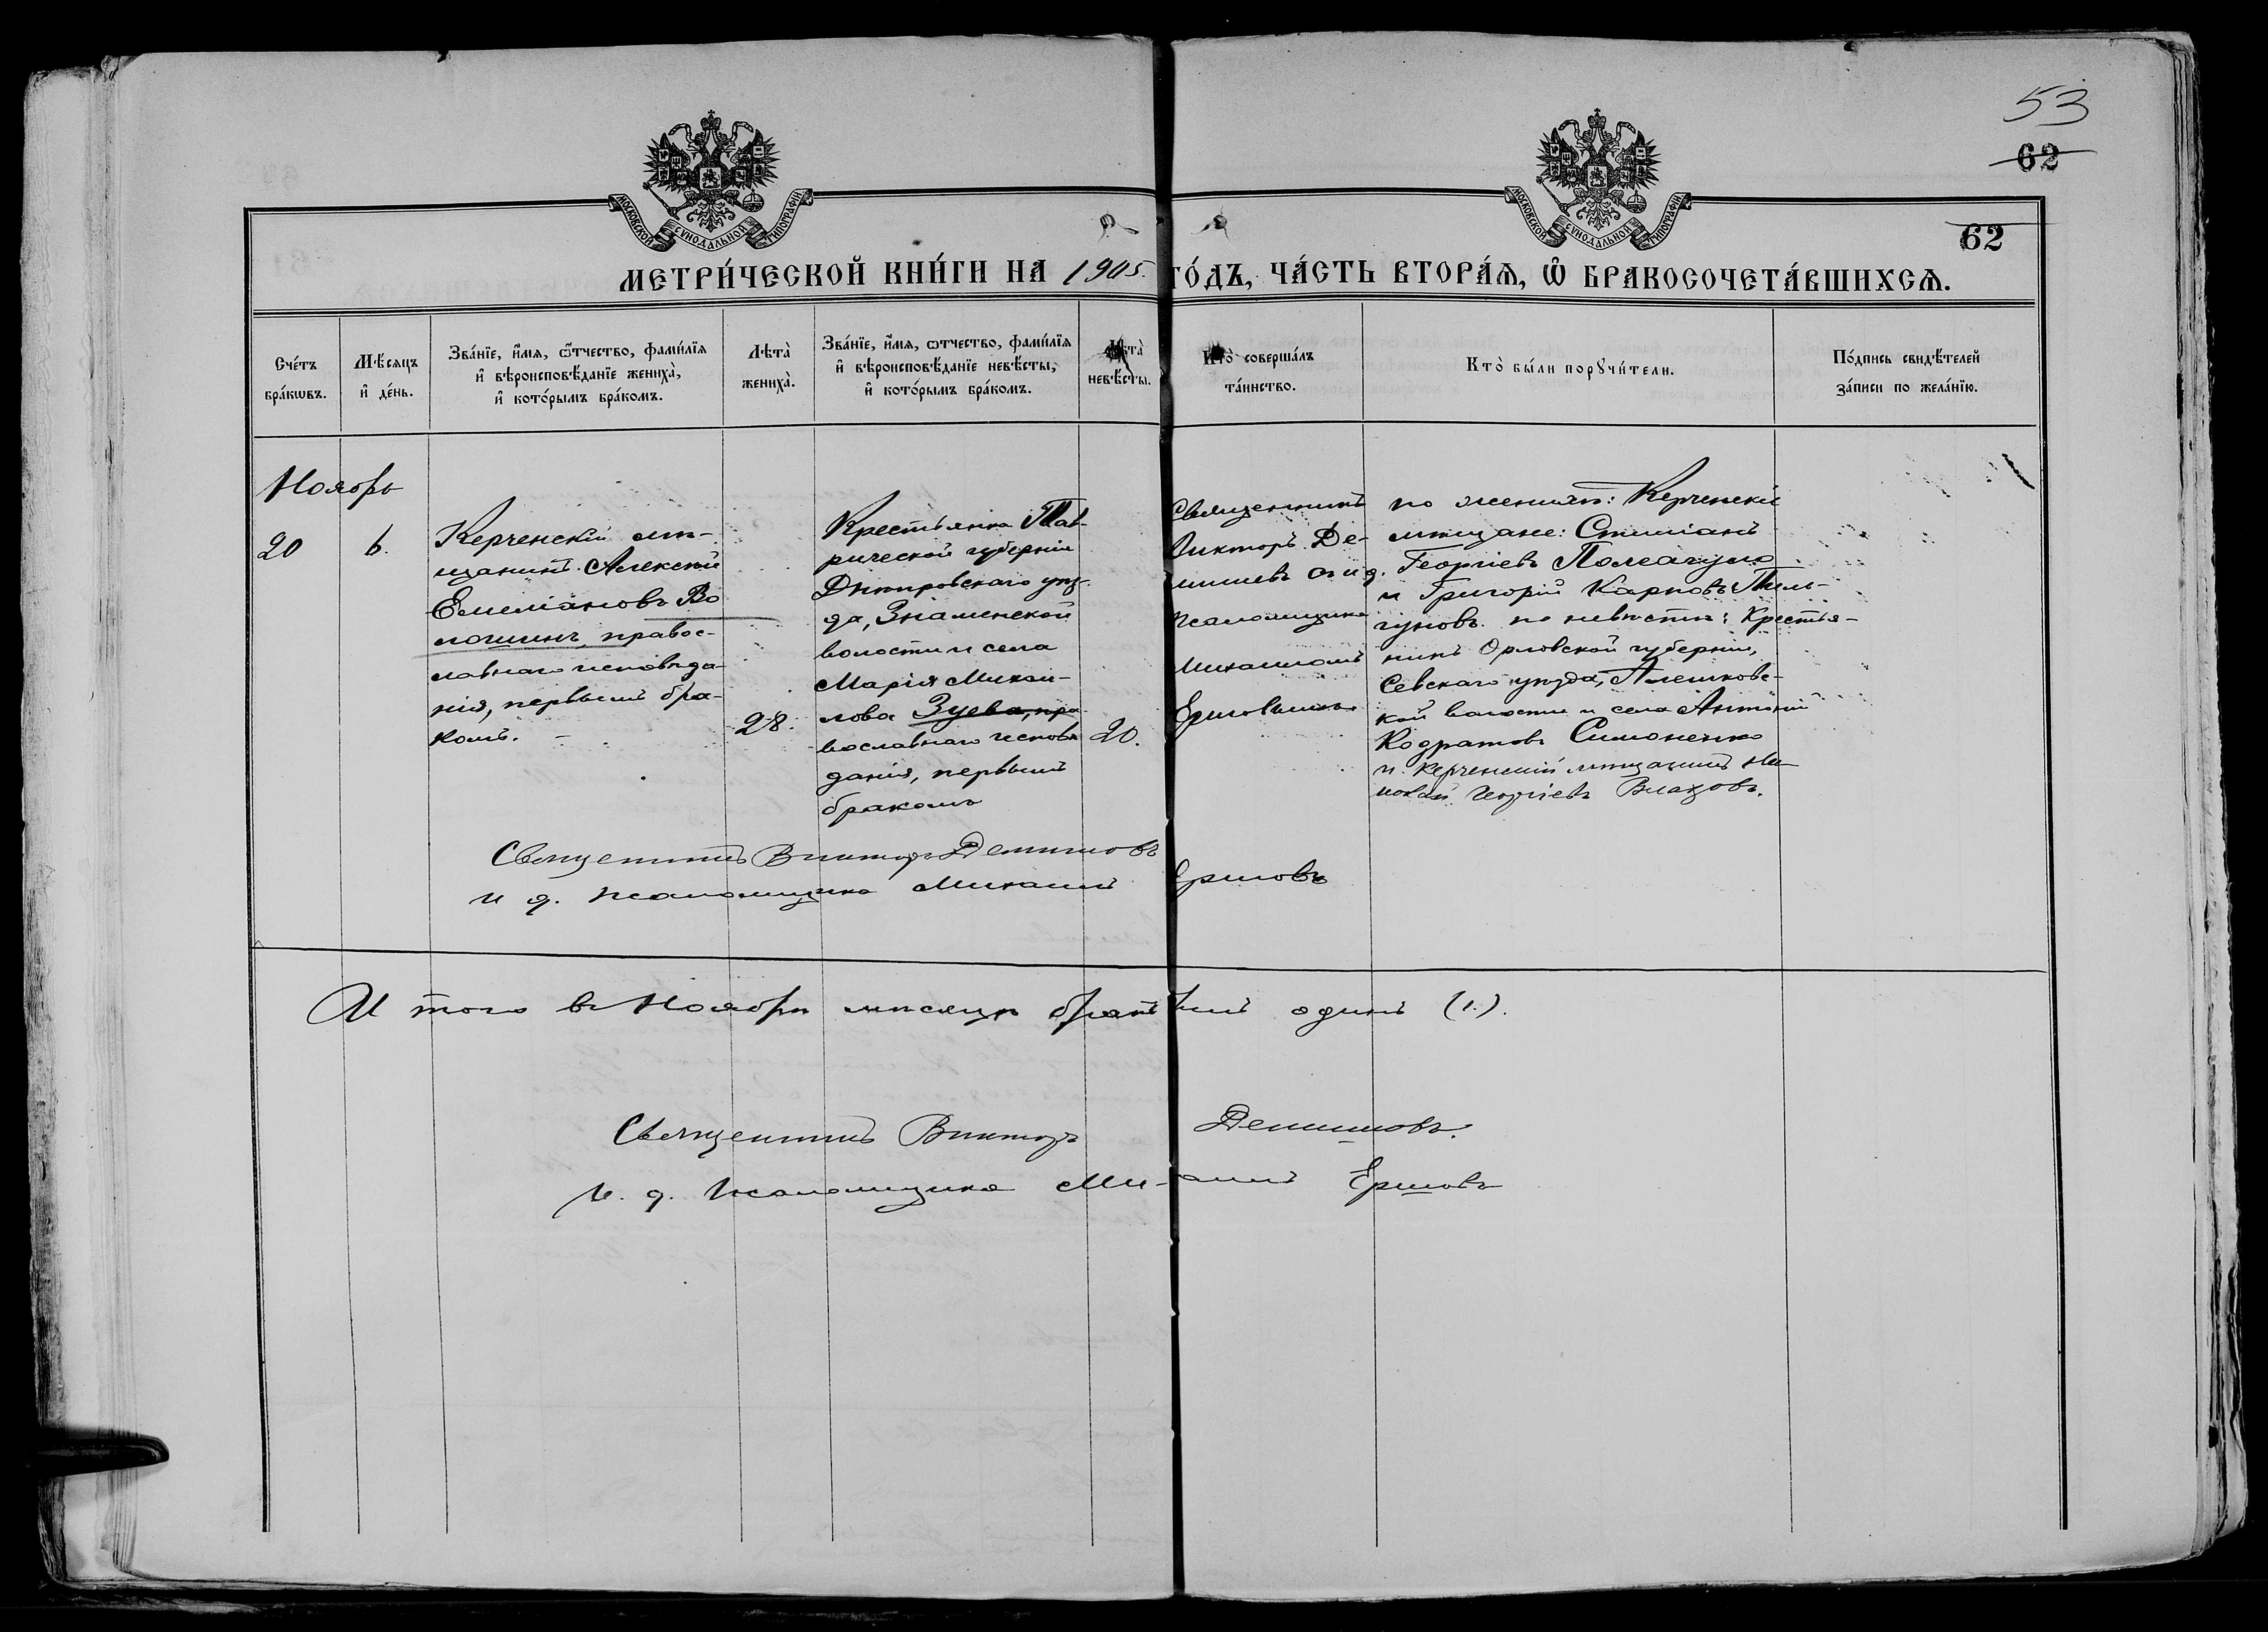 53
62
62
МОСКОВСКОЙ СѴНОДАЛЬНОЙ ТИПОГРАФІИ
МОСКОВСКОЙ СѴНОДАЛЬНОЙ ТИПОГРАФІИ
МЕТРИ́ЧЕСКОЙ КНИ́ГИ НА 1905. ГО́ДЪ, ЧА́СТЬ ВТОРА́Я, Ѽ БРАКОСОЧЕТА́ВШИХСЯ.
Сче́тъ
бра́кѡвъ.
Мѣ́сяцъ
и҆ де́нь.
Зва́нїе, и҆́мя, ѻ҆́тчество, фами́лїя
и҆ вѣроисповѣ́данїе жениха̀,
и҆ кото́рымъ бра́комъ.
Лѣта̀
жениха̀.
Зва́нїе, и҆́мя, ѻ҆́тчество, фами́лїя
и҆ вѣроисповѣ́данїе невѣ́сты,
и҆ кото́рымъ бра́комъ.
Лѣта̀
невѣ́сты.
Кто̀ соверша́лъ
та́инство.
Кто̀ бы́ли порꙋчи́тели.
По́дпись свидѣ́телей
за́писи по жела́нїю.
Ноябрь
20
6.
Керченскій мѣ-
щанинъ Алексѣй
Емеліановъ Во
лошинъ, правос-
лавнаго исповѣда-
нія, первымъ бра-
комъ.
28.
Крестьянка Тав-
рической губерніи
Днѣпровскаго уѣз-
да, Знаменской
волости и села
Марія Михаи-
лова Зуева, пра
вославнаго исповѣ
данія, первымъ
бракомъ
20.
Священникъ
Викторъ Де-
мишевъ съ и.д.
псаломщика
Михаиломъ
Ершовымъ
по женихѣ: Керченскіе
мѣщане: Стиліанъ
Георгіевъ
и Григорій Карповъ
по невѣстѣ: Крестья-
нинъ Орловской губерніи,
Севскаго уѣзда, Алешковс-
кой волости и села Антоній
Кодратовъ Симоненко
и Керченскій мѣщанинъ Ни
колай Георгіевъ Влаховъ.
Священникъ Викторъ
и д. псаломщика Михаилъ Ершовъ
И того въ Ноябрѣ мѣсяцѣ одинъ (1.).
Священникъ Викторъ
и. д. псаломщика Ершовъ